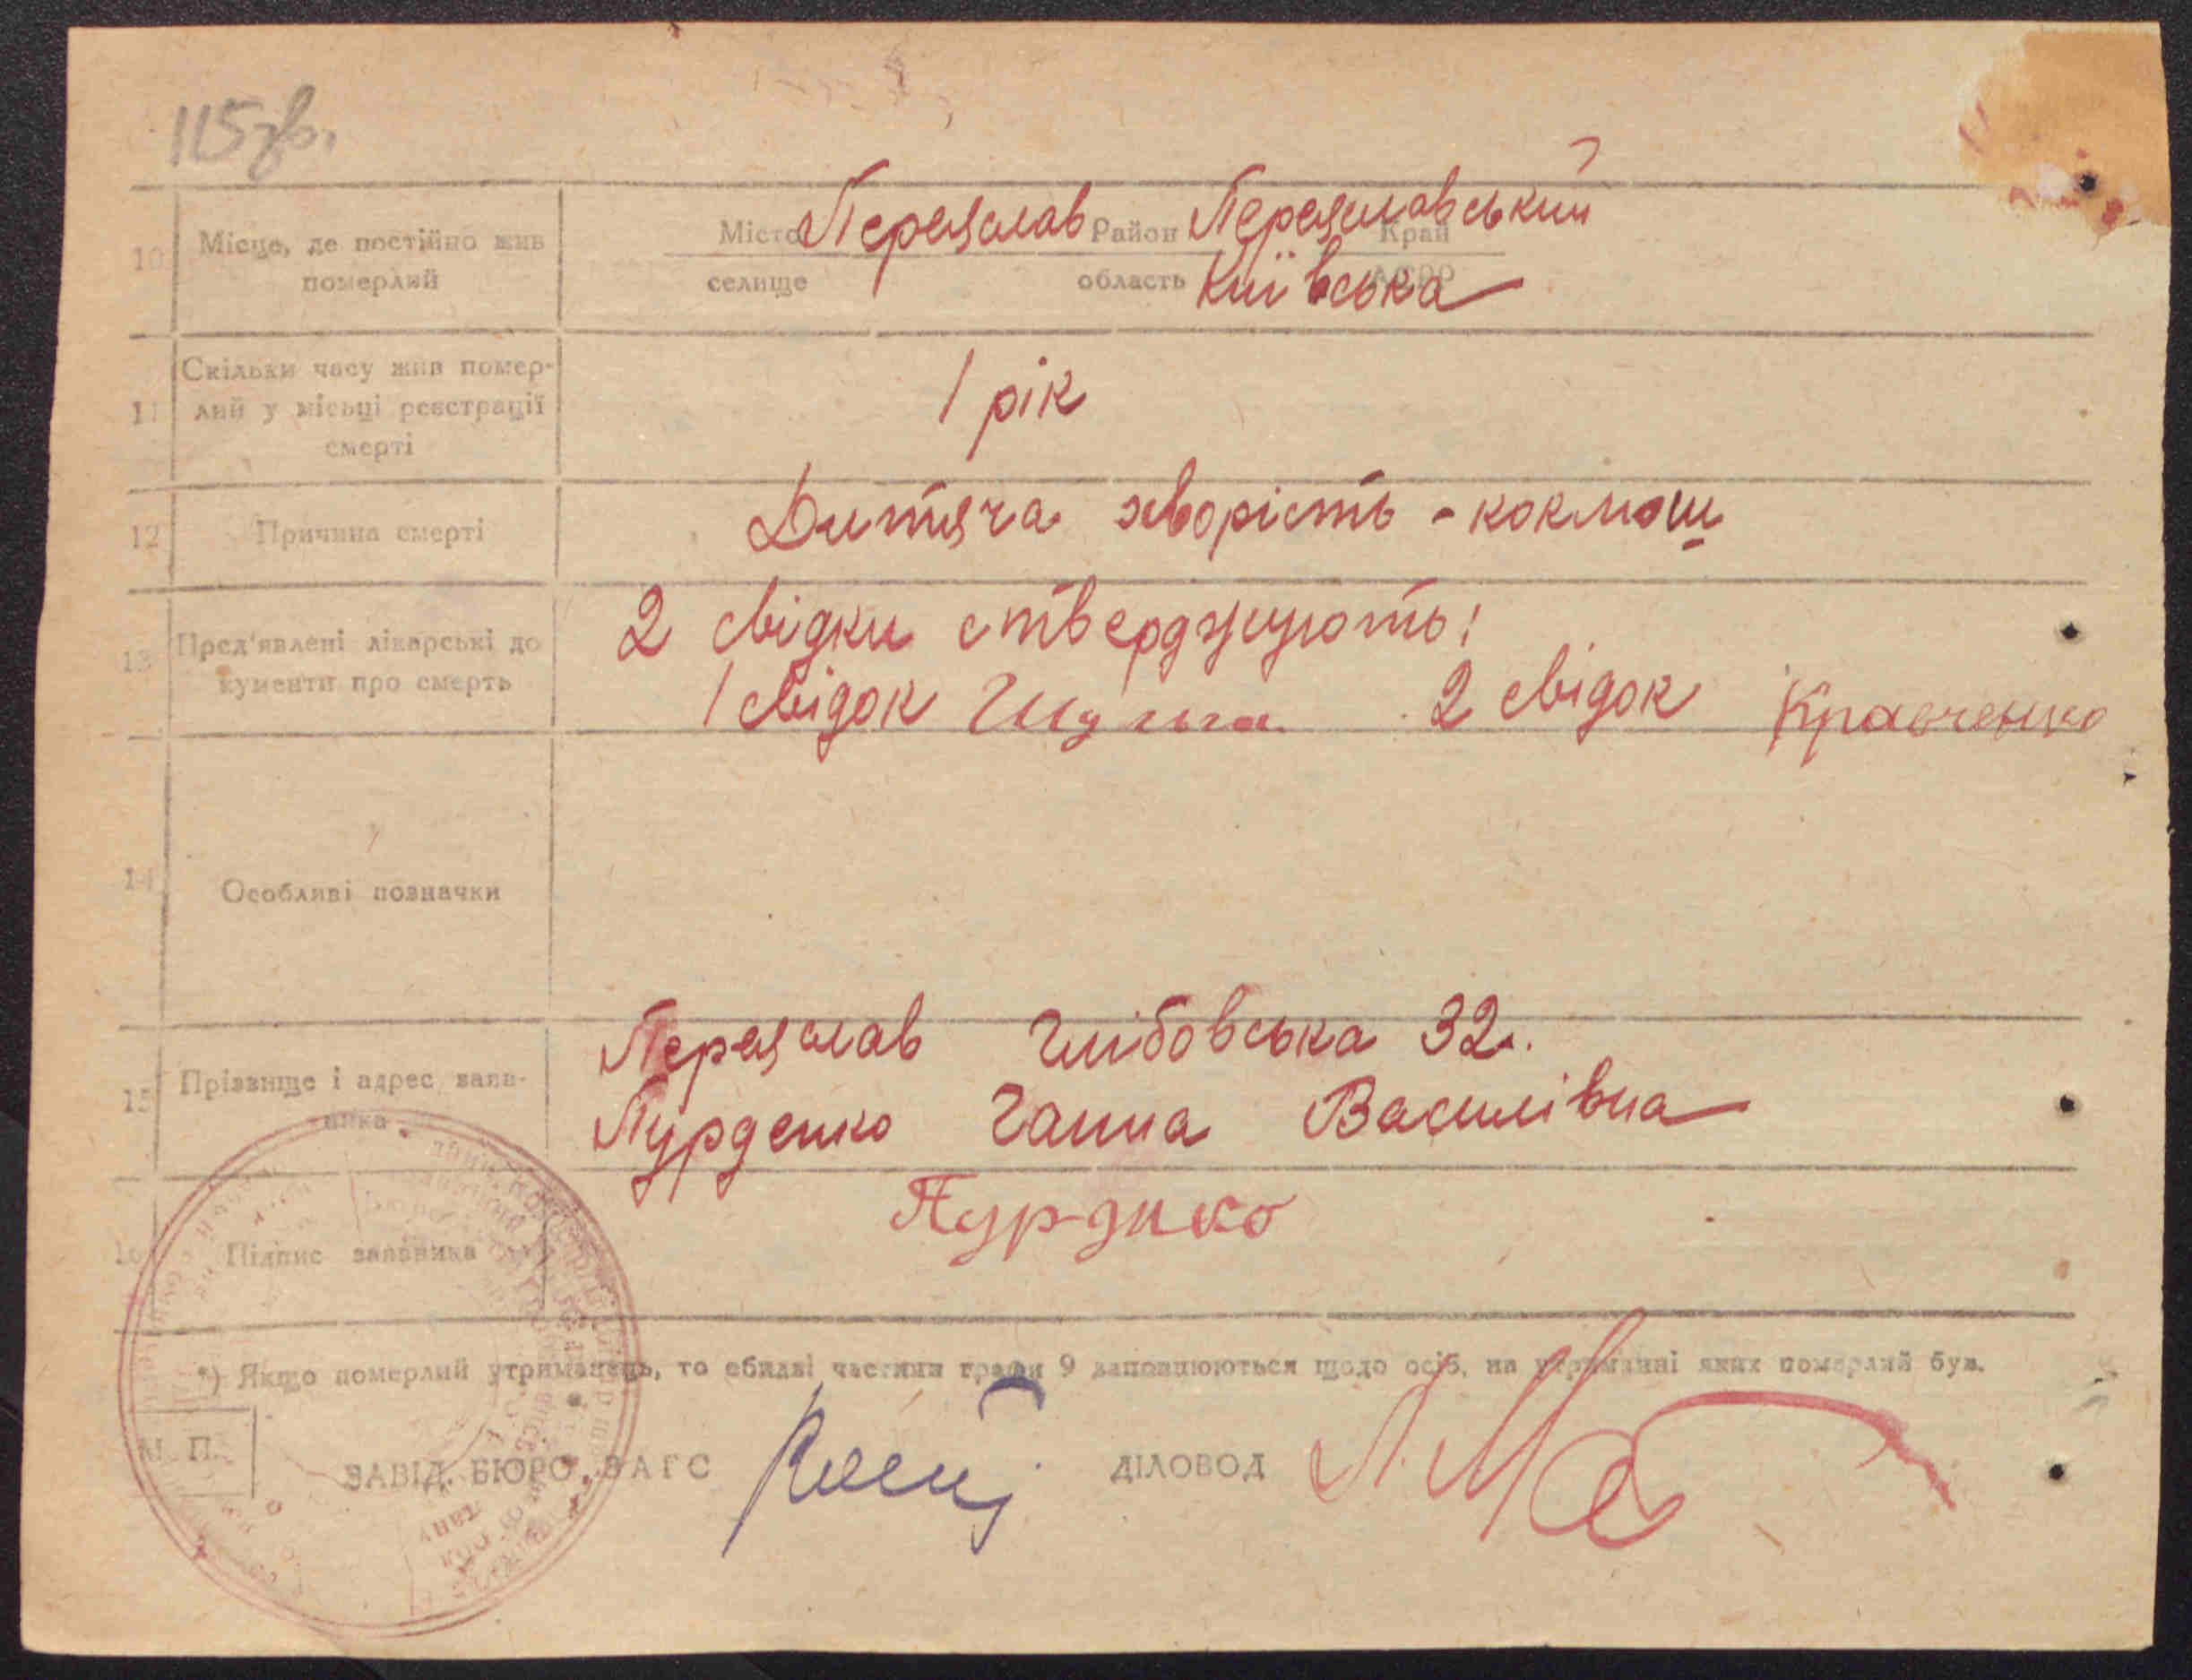 115 зв.
10 Місце, де постійно жив померлий
Місто Переяслав Район Переяславський Край
селище область Київська АСРР
11 Скільки часу жив помер-
лий у місьці реєстрації
смерті
1 рік
12 Причина смерті
Дитяча хворість - коклюш
13 Пред'явлені лікарські до
кументи про смерть
2 свідки стверджують:
1 свідок Шульга 2 свідок Кравченко
14 Особливі позначки
15 Прізвище і адрес заяв-
ника
Переяслав Глібовська 32.
Пурденко Ганна Василівна
16 Підпис заявника
Пурднко
*) Якщо померлий утриманець, то обидві частини графи 9 заповнюються щодо осіб, на утриманні яких померлий був.
М. П.
ЗАВІД. БЮРО ЗАГС
ДІЛОВОД